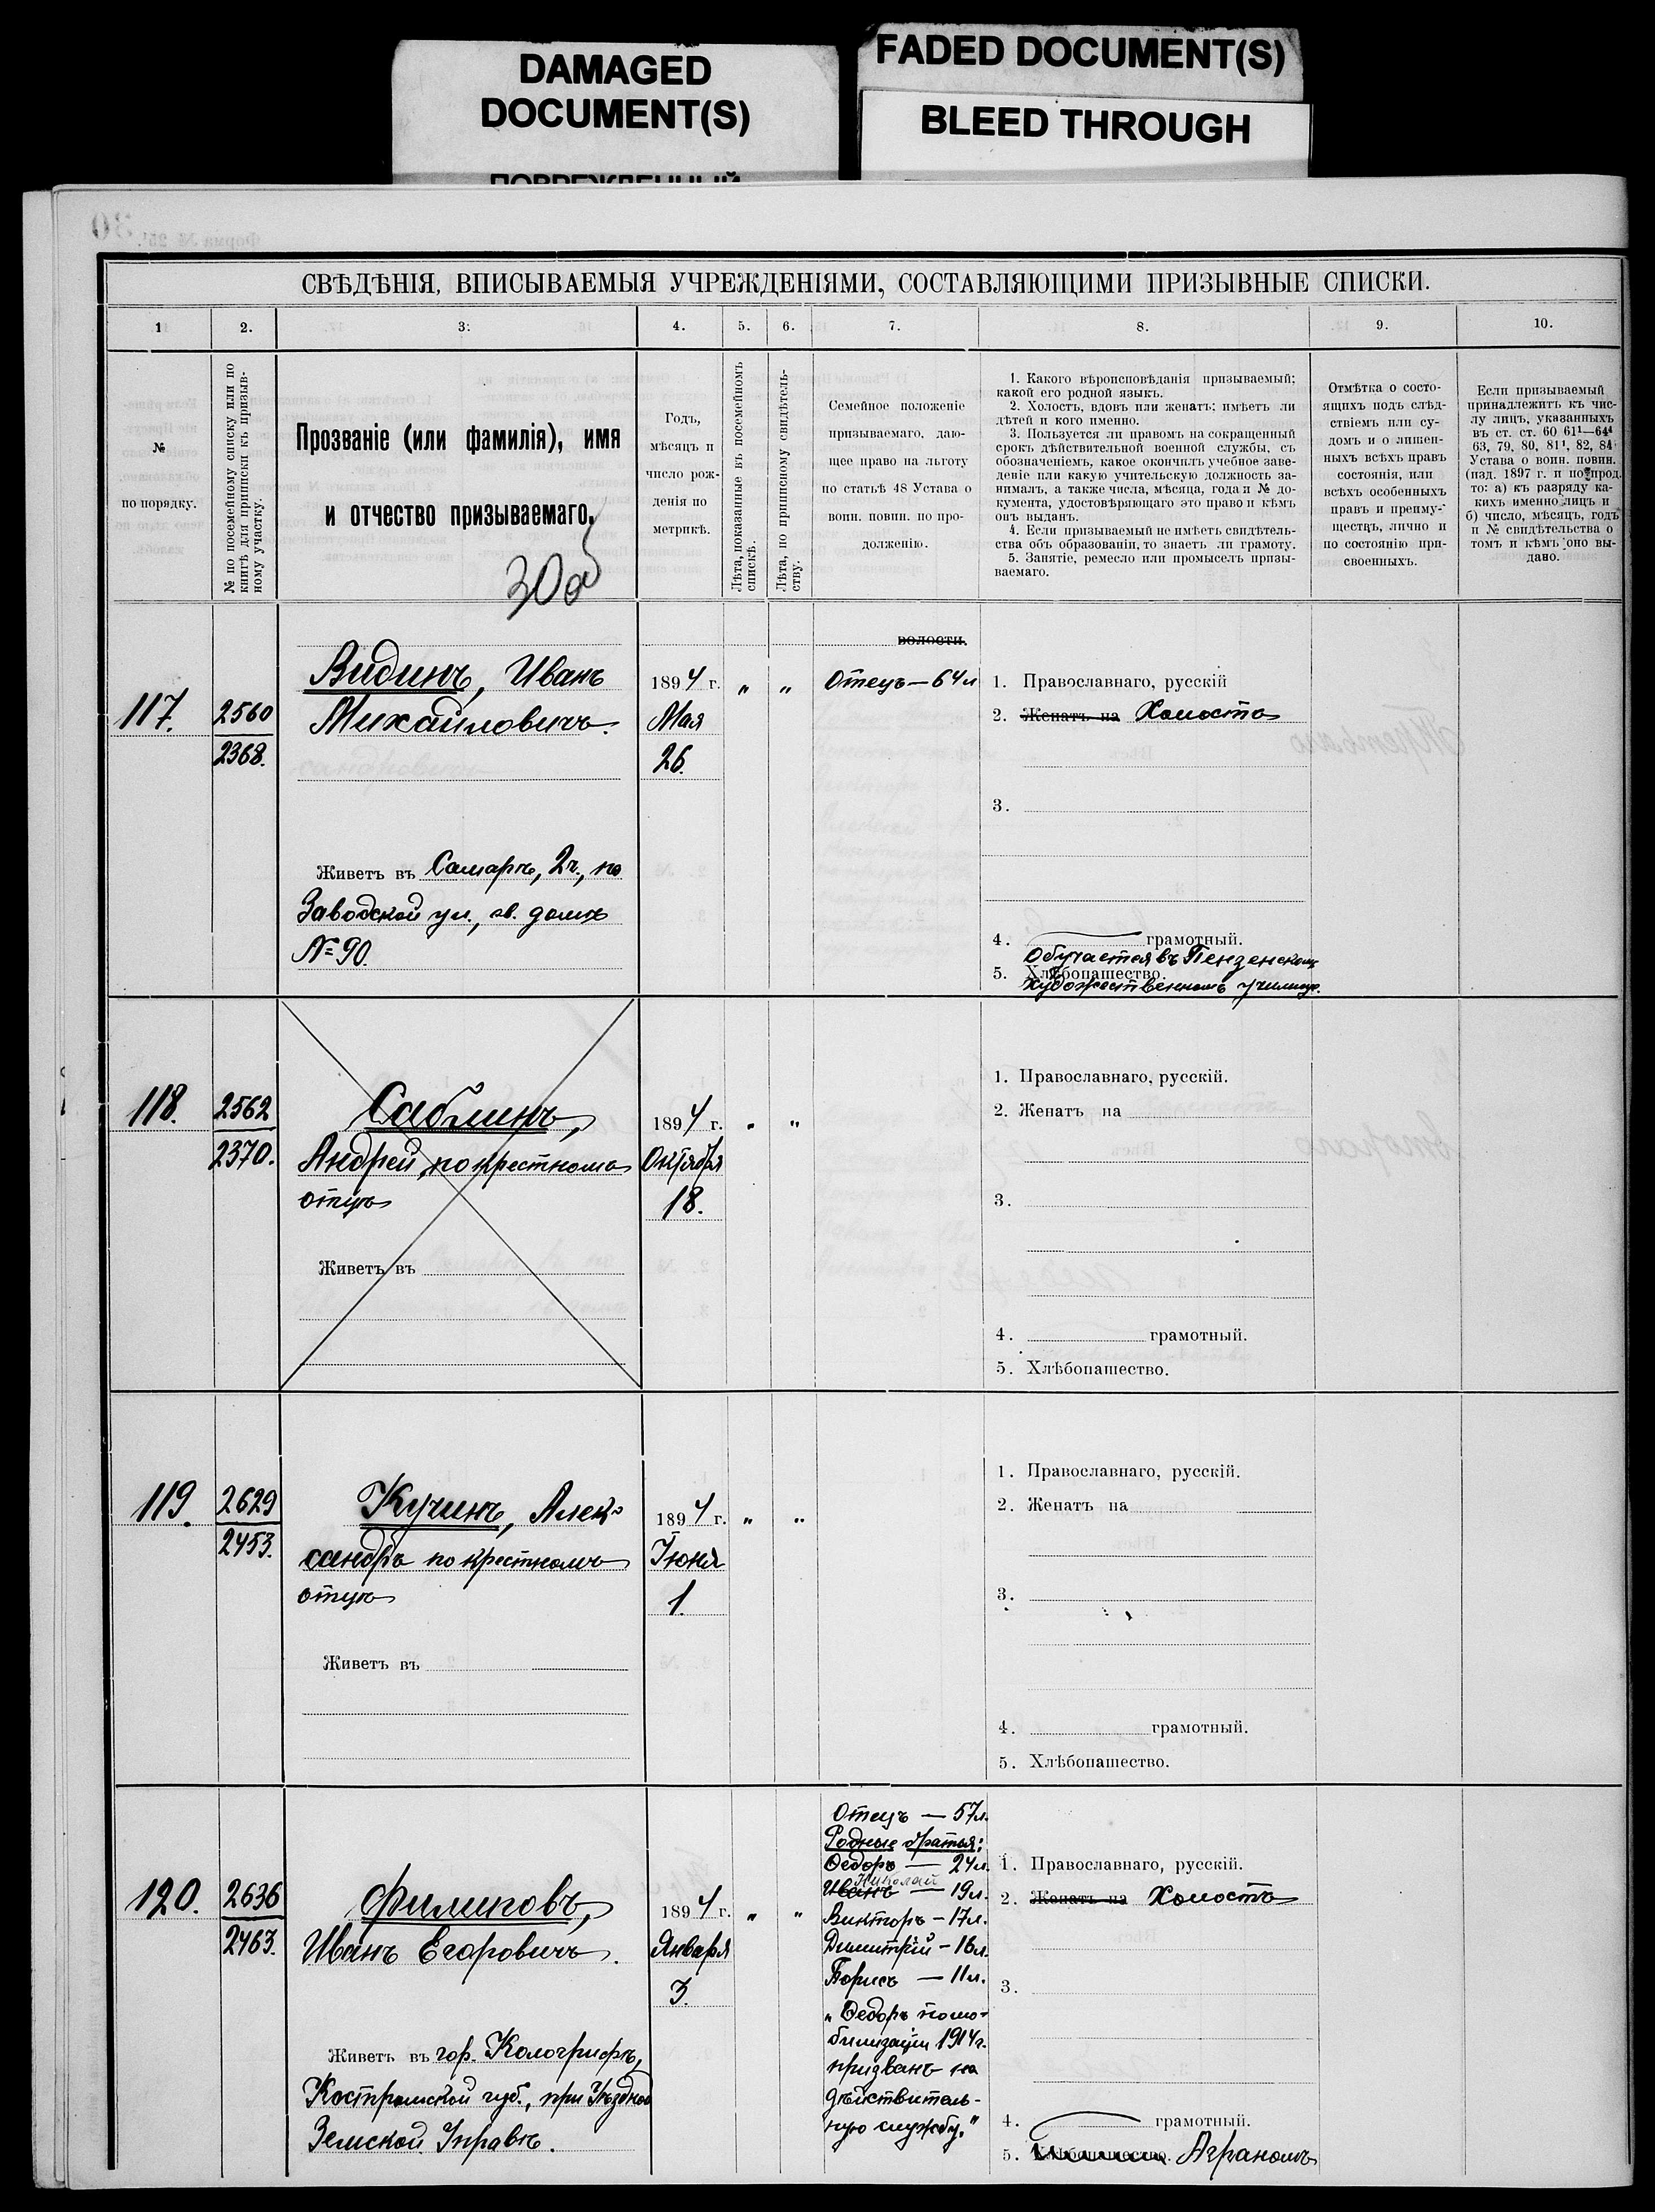 DAMAGED
DOCUMENT(S)
FADED DOCUMENT(S)
BLEED THROUGH
СВѢДѢНІЯ, ВПИСЫВАЕМЫЯ УЧРЕЖДЕНІЯМИ, СОСТАВЛЯЮЩИМИ ПРИЗЫВНЫЕ СПИСКИ.
1
2.
3.
4.
5.
6.
7.
8.
9.
10.
№
по порядку.
№ по посемейному списку или по
книгѣ для приписки къ призыв-
ному участку.
Прозваніе (или фамилія), имя
и отчество призываемаго.
30об
Годъ,
мѣсяцъ и
число рож-
денія по
метрикѣ.
Лѣта, показанные въ посемейномъ
спискѣ.
Лѣта, по приписному свидѣтель-
ству.
Семейное положеніе
призываемаго, даю-
щее право на льготу
по статьѣ 48 Устава о
воин. повин. по про-
долженію.
1. Какого вѣроисповѣданія призываемый;
какой его родной языкъ.
2. Холостъ, вдовъ или женатъ; имѣетъ ли
дѣтей и кого именно.
3. Пользуется ли правомъ на сокращенный
срокъ дѣйствительной военной службы, съ
обозначеніемъ, какое окончилъ учебное заве-
деніе или какую учительскую должность за-
нималъ, а также числа, мѣсяца, года и № до-
кумента, удостовѣряющаго это право и кѣмъ
онъ выданъ.
4. Если призываемый не имѣетъ свидѣтель-
ства объ образованіи, то знаетъ ли грамоту.
5. Занятіе, ремесло или промыселъ призы-
ваемаго.
Отмѣтка о состо-
ящихъ подъ слѣд-
ствіемъ или су-
домъ и о лишен-
ныхъ всѣхъ правъ
состоянія, или
всѣхъ особенныхъ
правъ и преиму-
ществъ, лично и
по состоянію при-
своенныхъ.
Если призываемый
принадлежитъ къ чис-
лу лицъ, указанныхъ
въ ст. ст. 60 61¹—64⁴
63, 79, 80, 81¹, 82, 84
Устава о воин. повин.
(изд. 1897 г. и по прод.
то: а) къ разряду ка-
кихъ именно лицъ и
б) число, мѣсяцъ, годъ
и № свидѣтельства о
томъ и кѣмъ оно вы-
дано.
117.
2560
2368.
Видинъ, Иванъ
Михайловичъ.
Живетъ въ Самарѣ, 2ч., по
Заводской ул., въ домѣ
№ 90.
1894 г.
Мая
26.
"
"
волости.
Отецъ — 64 л
1. Православнаго, русскій
2. Женатъ на Холостъ
3.
4. грамотный.
Обучается въ Пензенскомъ
5. Хлѣбопашество.
Художественномъ училищѣ.
118.
2562
2370.
Саблинъ,
Андрей, по крестному
отцу
Живетъ въ
1894 г.
Октября
18.
"
"
1. Православнаго, русскій.
2. Женатъ на
3.
4. грамотный.
5. Хлѣбопашество.
119.
2629
2453.
Кучинъ, Алек-
сандръ по крестному
отцу
Живетъ въ
1894 г.
Іюня
1.
"
"
1. Православнаго, русскій.
2. Женатъ на
3.
4. грамотный.
5. Хлѣбопашество.
120.
2636
2463.
Филиповъ,
Иванъ Егоровичъ.
Живетъ въ гор. Кологрифѣ,
Костромской губ., при Уѣздной
Земской Управѣ.
1894 г.
Января
3.
"
"
Отецъ — 57 л.
Родные братья:
Ѳедоръ — 24 л.
Николай
Иванъ — 19 л.
Викторъ — 17 л.
Димитрій — 16 л.
Борисъ — 11 л.
„Ѳедоръ по мо-
билизаціи 1914 г.
призванъ на
дѣйствитель-
ную службу."
1. Православнаго, русскій.
2. Женатъ на Холостъ
3.
4. грамотный.
5. Хлѣбопашество. Агрономъ